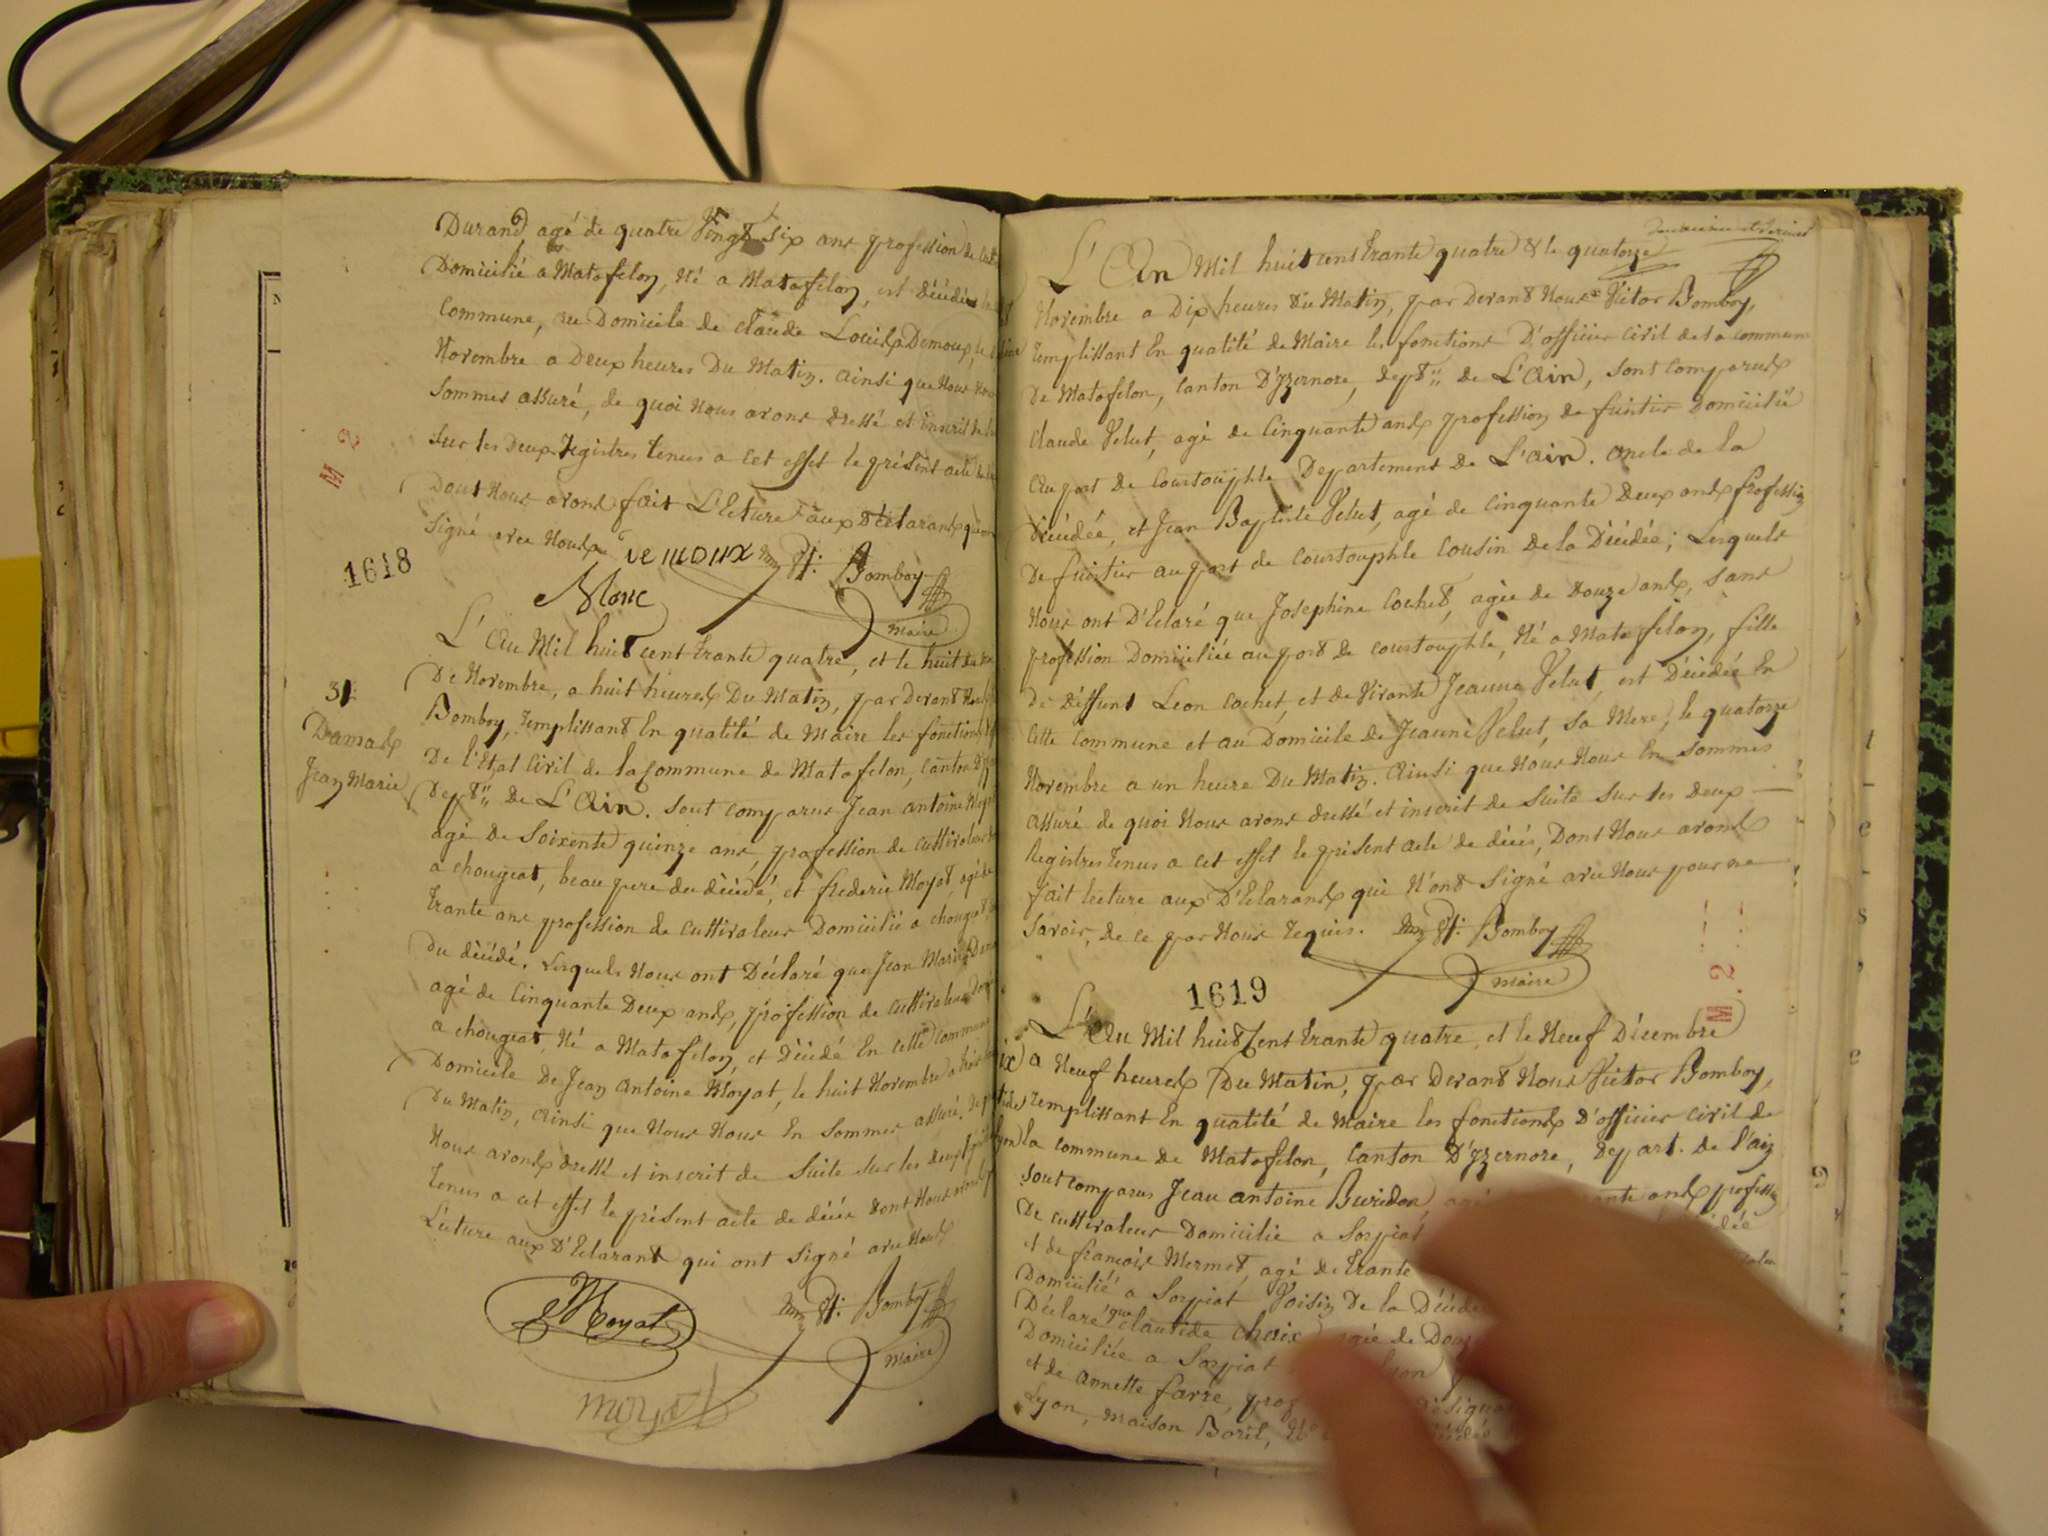 Durand agé de quatre Vingt Six ans profession de
Domicilié a Matafelon, Né a Matafelon, est Décédé
Commune, au Domicile de Claude Louis Demoux, le
Novembre a Deux heures Du Matin. ainsi que Nous Nous
Sommes assuré, de quoi Nous avons dressé et inscrit de
Sur les Deux Registres tenus a cet effet le présent acte de
Dont Nous avons fait L'Ecture aux déclarants qui ont
Signé avec Nous
Demoux Bomboy
1618
maire
L'An Mil huit cent trante quatre, et le huit du
De Novembre, a huit heures Du Matin, par Devant
31
Bomboy, remplissant En qualité de Maire les fonctions
Damas
De l'Etat Civil de la Commune de Matafelon, Canton
Jean Marie
Dept.. De L'Ain. Sont comparus Jean antoine
agé de Soixente quinze ans, profession de cultivateur
a chougeat, beau pere du décédé, et frederic Moyat agé de
trante ans profession de cultivateur Domicilié a chougeat,
du décédé. Lesquels Nous ont Déclaré que Jean Marie
agé de Cinquante Deux ans, profession de cultivateur
a chougeat, Né a Matafelon, et Décédé En cette commune
Domicile De Jean Antoine Moyat, le huit Novembre a
Du Matin, ainsi que Nous Nous En Sommes assuré. de
Nous avons dressé et inscrit de Suite Sur les deux
Tenus a cet effet le présent acte de décés dont Nous avons
Lecture aux D'Eclarant qui ont Signé avec Nous
Moyat Bomboy
maire
moyat
L'An Mil huit cens trante quatre & le quatorze
Novembre a Dix heures du Matin, par Devant Nous Victor Bomboy,
remplissant En qualité de Maire les fonctions D'officier Civil de la commune
de Matafelon, Canton D'yzernore, dept.. de L'Ain, Sont Comparus
Claude Velut, agé de Cinquante ans profession de fruitier Domicilié
au port de Courtouphle Departement de L'ain. oncle de la
décédée, et Jean Baptiste Velut, agé de Cinquante Deux ans profession
de fruitier au port de Courtouphle Cousin de la Décédée; Lesquels
Nous ont D'Eclaré que Josephine Cochet, agée de douze ans, Sans
profession Domiciliée au port de courtouphle, Né a Matafelon, fille
de déffunt Leon Cochet, et de Vivante Jeanne Velut, est Décédée En
Cette Commune et au Domicile de Jeanne Velut, Sa Mere, le quatorze
Novembre a un heure Du Matin. Ainsi que Nous Nous En Sommes
assuré de quoi Nous avons dressé et inscrit de Suite Sur les Deux
Registres Tenus a cet effet le présent acte de décés, Dont Nous avons
fait lecture aux D'Eclarans qui N'ont Signé avec Nous pour ne
Savoir, de ce par Nous Requis. Bomboy
maire
1619
L'An Mil huit Cent trante quatre, et le Neuf Décembre
a Neuf heures Du Matin, par Devant Nous Victor Bomboy,
remplissant En qualité de Maire les fonctions D'officier civil de
la commune de Matafelon, Canton D'yzernore, depart. de l'ain
Sont comparus Jean antoine Buridon,
De cultivateur Domicilié a Sorpiat
et de francois Mermet, agé de trante
Domicilié a Sorpiat Voisin De la Décédée
Déclaré que claudide choix agée de
Domiciliée a Sorpiat
et de annette farre,
Lyon, maison Boril,